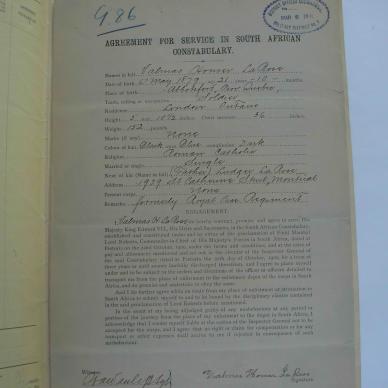 G.86
AGREEMENT FOR SERVICE IN SOUTH AFRICAN
CONSTABULARY.
Names in full. Valmas Homer LaRose
Date of birth. May 1879 21 10 months
Place of birth. Abbotsford Prov Quebec
Trade, calling or occupation. Soldier
Residence. London Ontario
Height. 5 10½ Chest 36 inches.
Weight. 152 pounds.
Marks (if any). None
Colour of hair. Black Blue complexion Dark
Religion. Roman Catholic
Married or single. Single
Next of kin (Name of) (Father) Ludger LaRose
Address. 1929 St Catherine Street, Montreal
Present corps. None
Remarks. formerly Royal Can Regiment
ENGAGEMENT.
I, Valmas H LaRose do hereby contract, promise and agree to serve His
Majesty King Edward VII, His Heirs and Successors, in the South African Constabulary,
established and constituted under and by virtue of the proclamation of Field Marshal
Lord Roberts, Commander-in-Chief of His Majesty's Forces in South Africa, dated at
Pretoria on the 22nd day of October, 1900, under the terms and conditions, and at the rates of
pay and allowances mentioned and set out in the circular of the Inspector General of
the said Constabulary
three years or until sooner lawfully discharged therefrom, and I agree to place myself
under and to be subject to the orders and directions of the officer or officers detailed to
transmit me from the place of my enlistment to the substance depot of the corps in South
Africa, and do promise and undertake to obey the same.
And I do further agree while in transit from place of enlistment to destination in
South Africa to submit myself to and to be bound by the disciplinary clauses contained
in the said proclamation of Lord Roberts before mentioned.
In the event of my being adjudged guilty of any misbehaviour at any period or
portion of the journey from the place of my enlistment to the depot in South Africa, I
acknowledge that I render myself liable at the option of the Inspector General not to be
accepted to the corps, and I agree that no right or claim for compensation or for any
transport or other expenses shall accrue to me if rejected in consequence of such
misbehaviour.
Witness
Valmas Homer LaRose
Signature